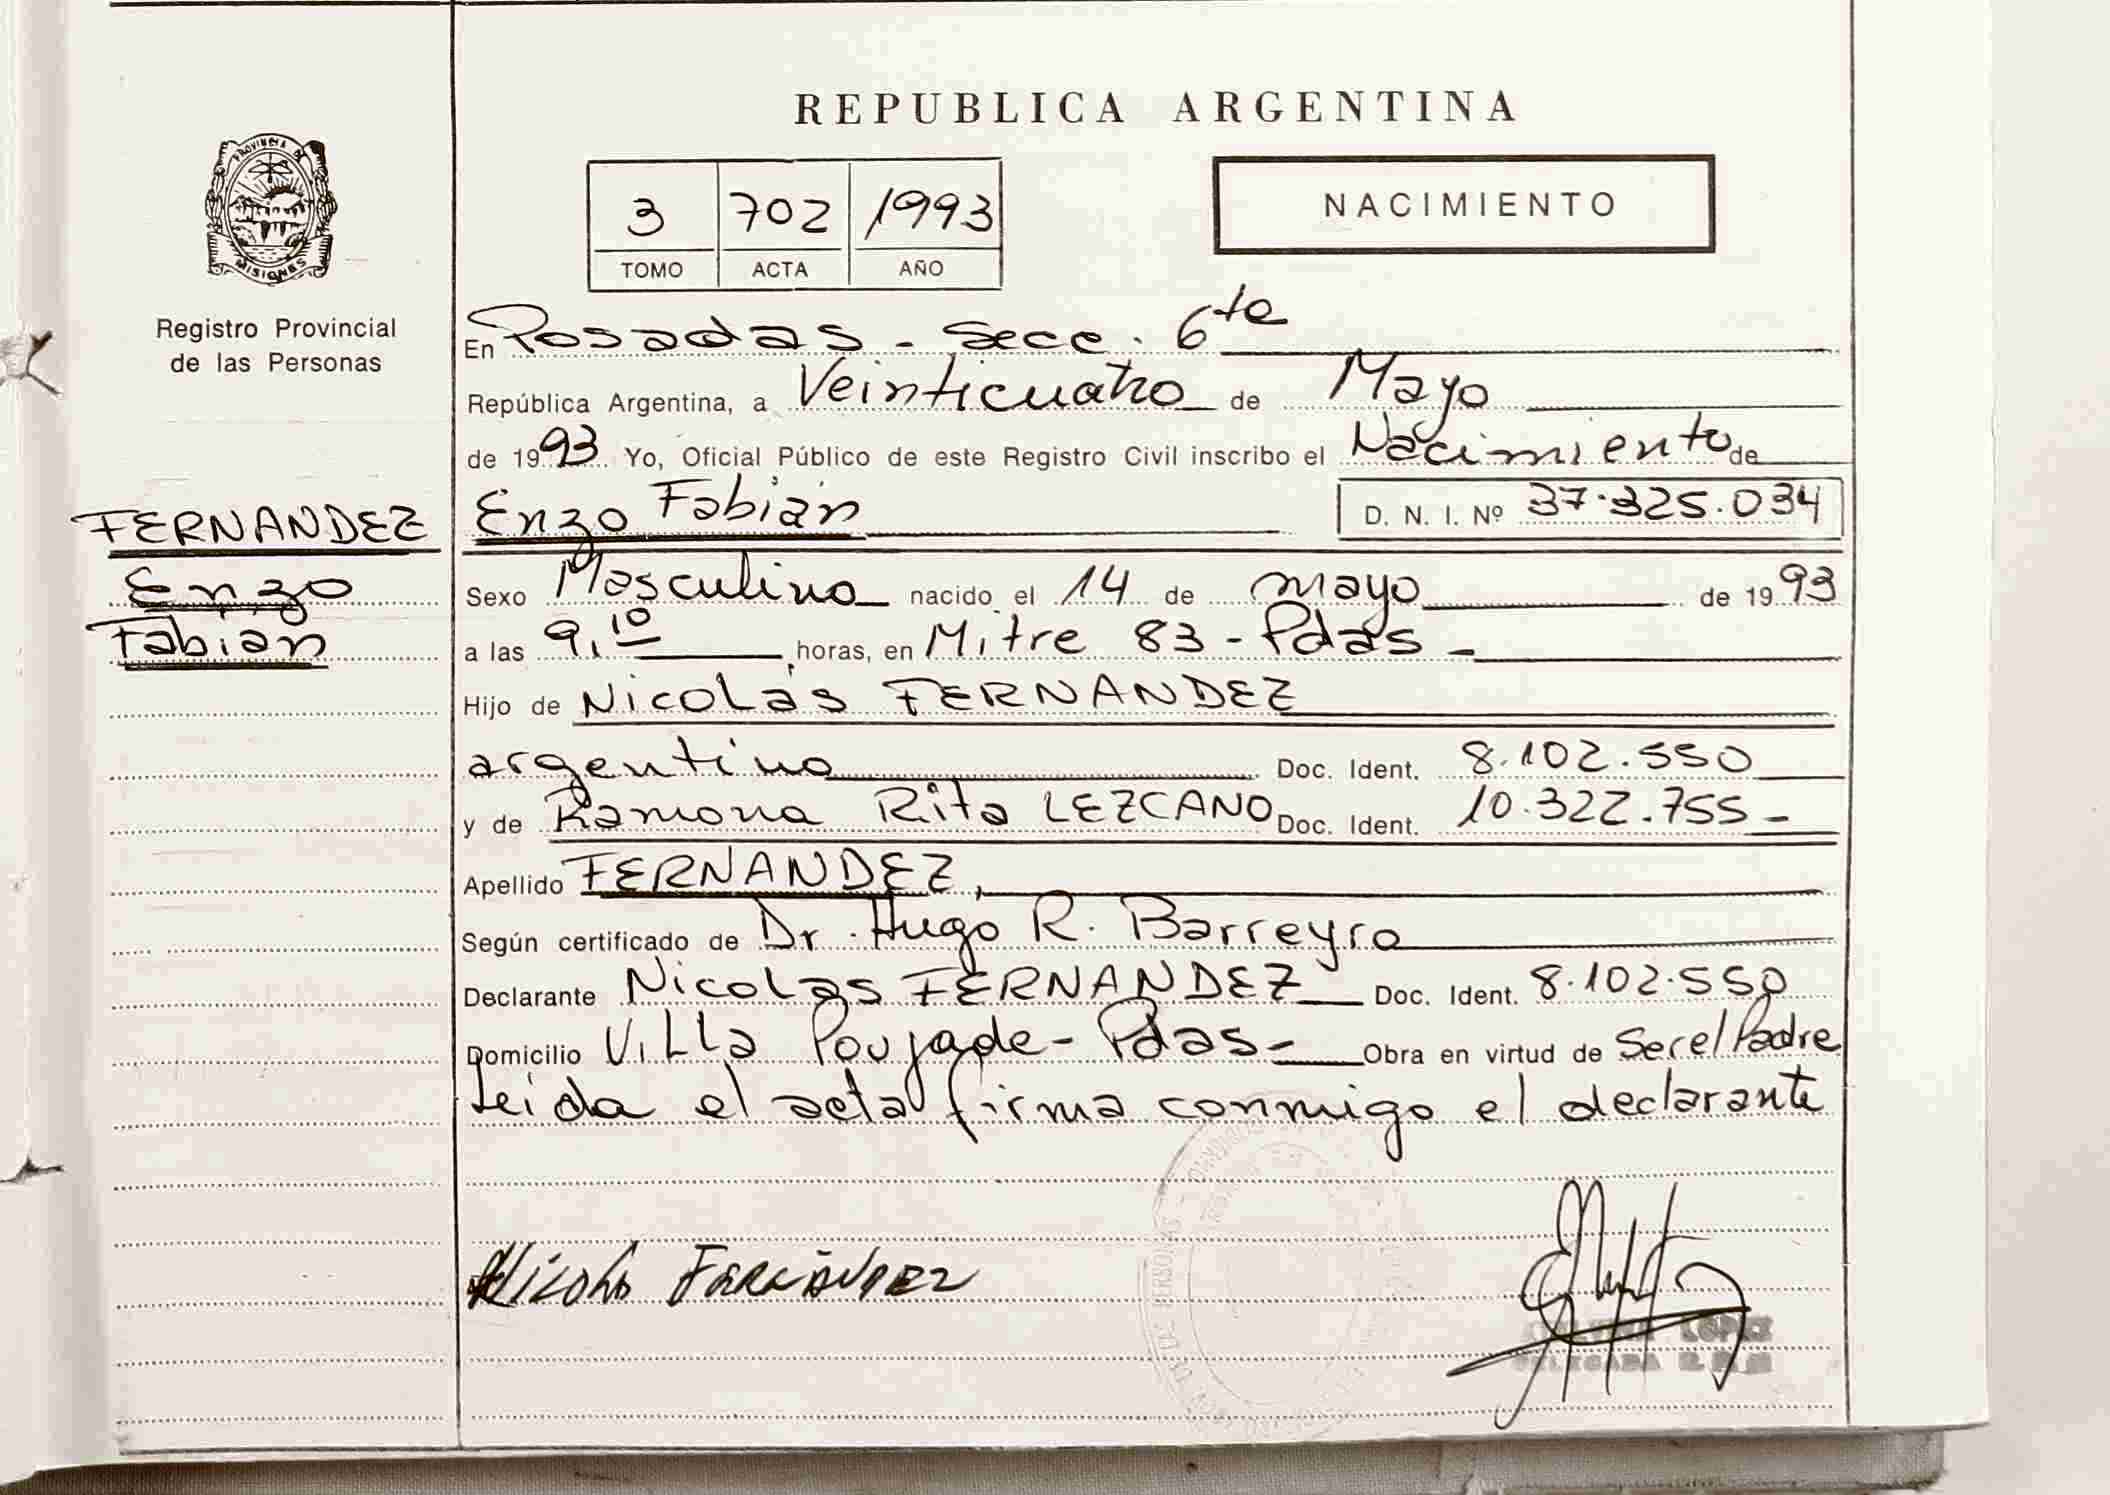 REPUBLICA ARGENTINA
PROVINCIA DE
MISIONES
Registro Provincial
de las Personas
3 702 1993
TOMO ACTA AÑO
NACIMIENTO
En Posadas - Secc. 6ta
República Argentina, a Veinticuatro de Mayo
de 1993 Yo, Oficial Público de este Registro Civil inscribo el Nacimiento de
FERNANDEZ
Enzo
Fabián
Enzo Fabián D. N. I. Nº 37.325.034
Sexo Masculino nacido el 14 de mayo de 1993
a las 9,10 horas, en Mitre 83 - Pdas -
Hijo de Nicolás FERNANDEZ
argentino Doc. Ident. 8.102.550
y de Ramona Rita LEZCANO Doc. Ident. 10.322.755 -
Apellido FERNANDEZ,
Según certificado de Dr. Hugo R. Barreyro
Declarante Nicolas FERNANDEZ Doc. Ident. 8.102.550
Domicilio Villa Poujade - Pdas - Obra en virtud de Ser el Padre
Leída el acta firma conmigo el declarante
LOPEZ
DELEGADA